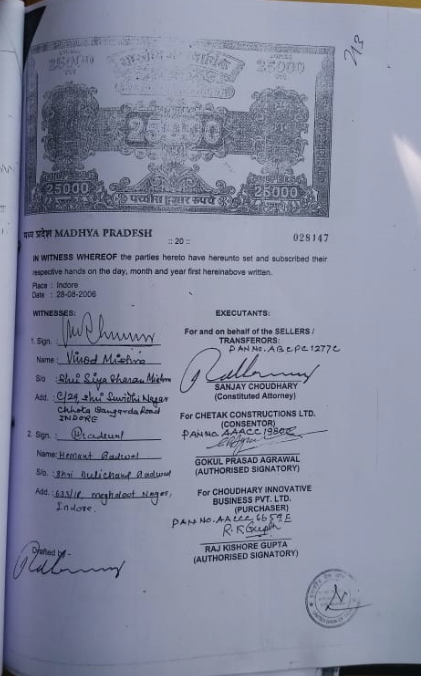 213
25000
25000
25000
25000
25000
पच्चीस हजार रुपये
मध्य प्रदेश MADHYA PRADESH
:: 20 ::
028147
IN WITNESS WHEREOF the parties hereto have hereunto set and subscribed their
respective hands on the day, month and year first hereinabove written.
Place : Indore
Date : 28-08-2006
WITNESSES:
1. Sign.
Name: Vinod Mishra
S/o : Shri Siya Sharan Mishra
Add. : C/29, Shri Suvidhi Nagar
Chhota Bangarda Road
INDORE
2. Sign. :
Name: Hemant Badwal
S/o. : Shri Dulichand Badwal
Add. : 635/18, Meghdoot Nagar,
Indore.
Drafted by -
EXECUTANTS:
For and on behalf of the SELLERS /
TRANSFERORS:
PAN NO. ABCPC1277C
SANJAY CHOUDHARY
(Constituted Attorney)
For CHETAK CONSTRUCTIONS LTD.
(CONSENTOR)
PAN NO. AAACC1980
GOKUL PRASAD AGRAWAL
(AUTHORISED SIGNATORY)
For CHOUDHARY INNOVATIVE
BUSINESS PVT. LTD.
(PURCHASER)
PAN NO. AACCC6659E
R.K Gupta
RAJ KISHORE GUPTA
(AUTHORISED SIGNATORY)